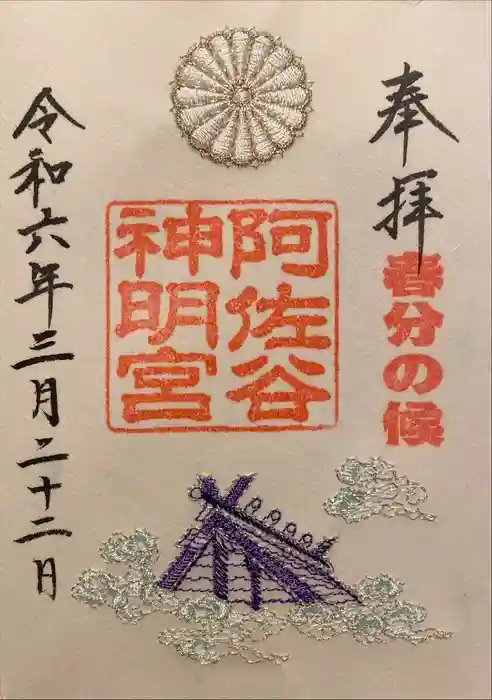 奉拝
春分の候
阿佐谷
神明宮
令和六年三月二十二日